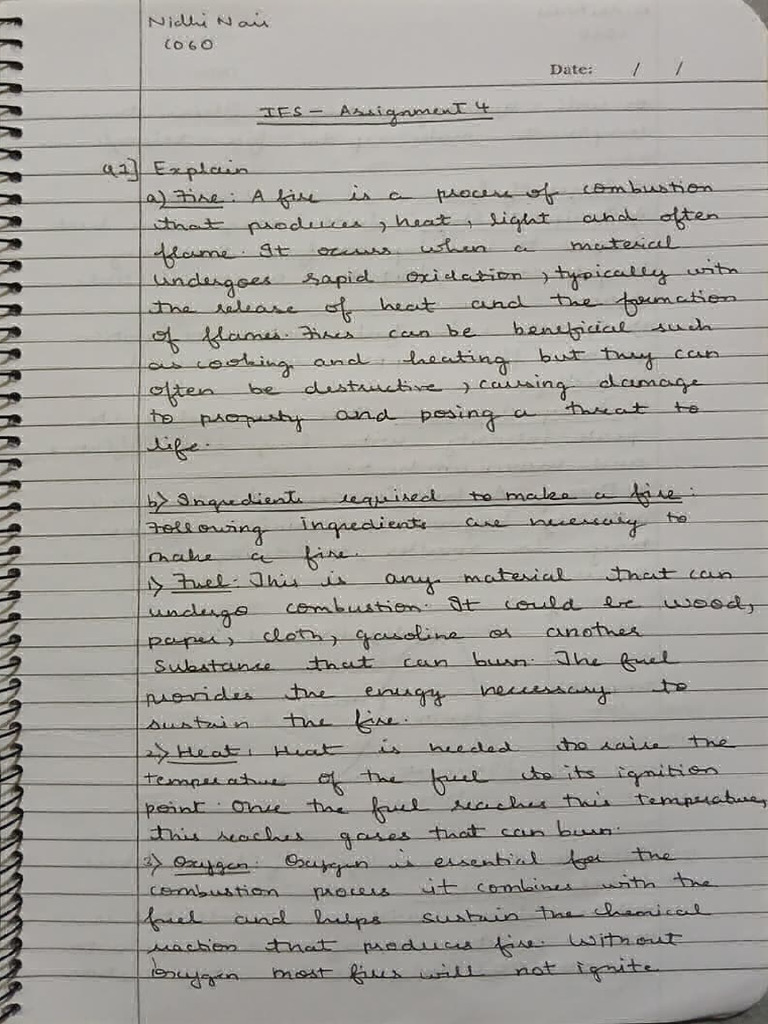 Nidhi Nair
C060
Date: / /
IFS - Assignment 4
Q1] Explain
a) Fire: A fire is a process of combustion
that produces, heat, light and often
flame. It occurs when a material
undergoes rapid oxidation, typically with
the release of heat and the formation
of flames. Fires can be beneficial such
as cooking and heating but they can
often be destructive, causing damage
to property and posing a threat to
life.
b) Ingredients required to make a fire:
Following ingredients are necessary to
make a fire.
1) Fuel: This is any material that can
undergo combustion. It could be wood,
paper, cloth, gasoline or another
substance that can burn. The fuel
provides the energy necessary to
sustain the fire.
2) Heat: Heat is needed to raise the
temperature of the fuel to its ignition
point. Once the fuel reaches this temperature,
this reaches gases that can burn.
3) Oxygen: Oxygen is essential for the
combustion process it combines with the
fuel and helps sustain the chemical
reaction that produces fire. Without
oxygen most fires will not ignite.